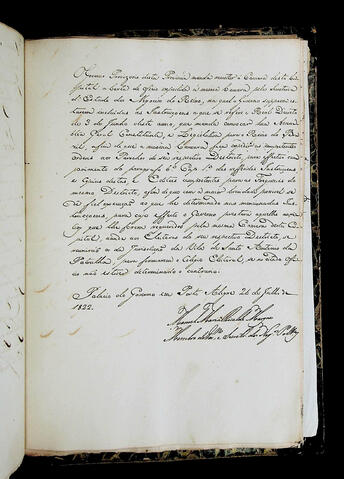 O Governo Provizorio desta Provincia manda remeter á Camara desta Ca-
pital a carta de officio expedida á mesma Camara pela Secretaria
d'Estado dos Negocios do Reino, na qual o Governo
incluidas as Instrucçoens a que se refere o Real Decreto
de 3 de Junho deste anno, que manda convocar huma Assem-
blea Geral Constituinte, e Legislativa para o Reino do Bra-
zil, afim de que a mesma Camara faça expedir as competentes
ordens aos Parochos do seu respectivo Destricto, para effectivo cum-
primento do paragrafo 6º Capº 1º das referidas Instrucçoens
e Copias destas e Editaes competentes para as Freguezias do
mesmo Destricto, afim de que com a maior brevidade possivel se
dê fiel execução ao que he determinado nas mencionadas Ins-
trucçoens, para cujo effeito o Governo prestará aquelles auxi-
lios que lhe forem requeridos pela mesma Camara desta Ca-
pital, aonde os Eleitores do seu respectivo Destricto, se
reunirão os da Jurisdicção da Villa de Santo Antonio da
Patrulha, para formarem o Colegio Eleitoral, se os ditos offi-
cios não estiver determinado o contrario.
Palacio do Governo em Porto Alegre 26 de Julho de
1822.
Manoel Maria Ricalde Marques
Membro e Secretº dos Negº